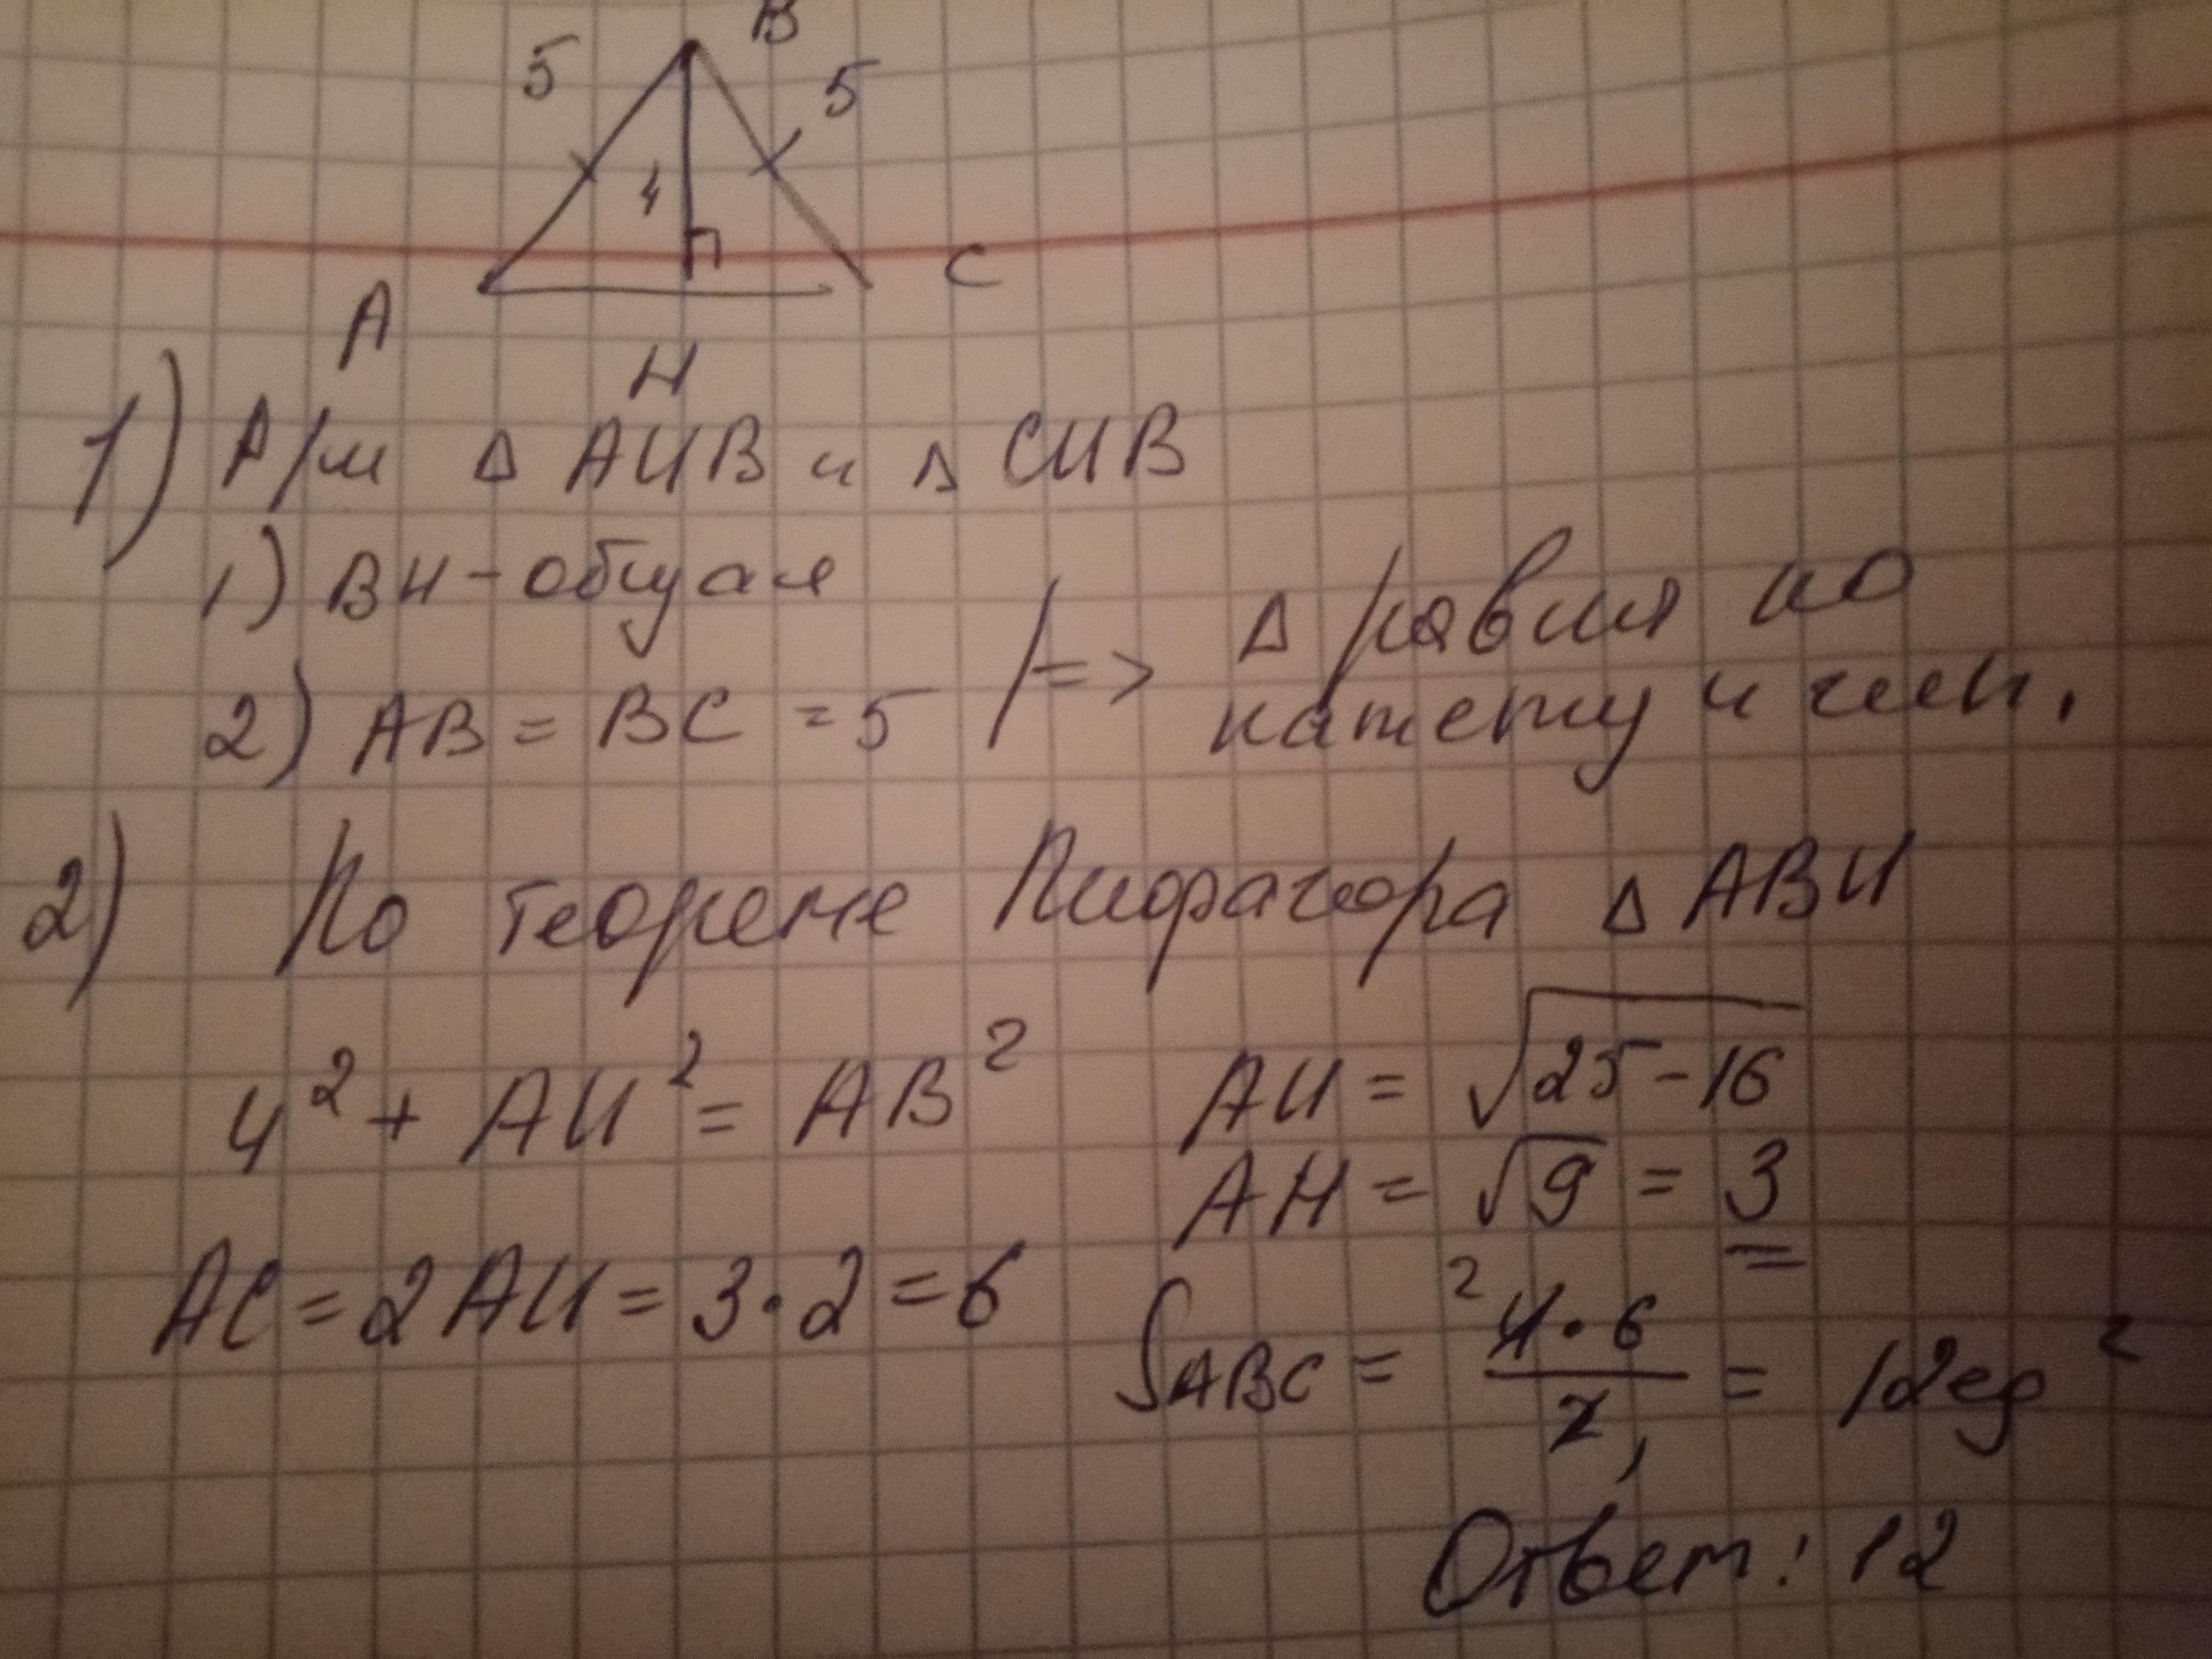 B
5 5
4
A C
H
1) Р/м Δ AHB и Δ CHB
1) BH - общая
2) AB = BC = 5 | => Δ равны по
катету и гип.
2) По теореме Пифагора Δ ABH
4² + AH² = AB² AH = √25-16
AH = √9 = 3
AC = 2AH = 3·2 = 6
S ABC = 4·6/2 = 12ед²
2
Ответ: 12